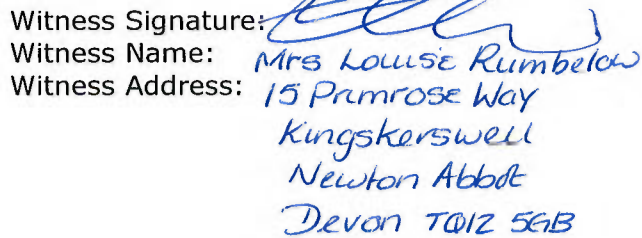 Witness Signature:
Witness Name: Mrs Louise Rumbelow
Witness Address: 15 Primrose Way
Kingskerswell
Newton Abbot
Devon TQ12 5GB